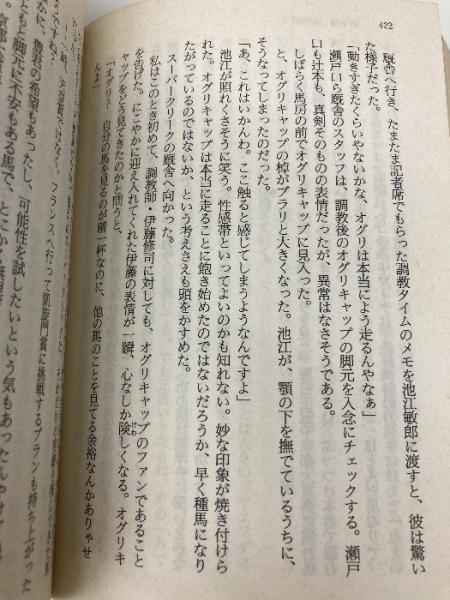 422
厩舎へ行き、たまたま記者席でもらった調教タイムのメモを池江敏郎に渡すと、彼は驚い
た様子だった。
「動きすぎたくらいやないかな、オグリは本当によう走るんやなぁ」
瀬戸口ら厩舎のスタッフは、調教後のオグリキャップの脚元を入念にチェックする。瀬戸
口も辻本も、真剣そのものの表情だったが、異常はなさそうである。
しばらく馬房の前でオグリキャップに見入った。
と、オグリキャップの棹がブラリと大きくなった。池江が、顎の下を撫でているうちに、
そうなってしまったのだった。
「あ、これはいかんわ。ここ触ると感じてしまうようなんですよ」
池江が照れくさそうに笑う。性感帯といってよいのかも知れない。妙な印象が焼き付けら
れた。オグリキャップは本当に走ることに飽き始めたのではないだろうか、早く種馬になり
たがっているのではないか、という考えさえも頭をかすめた。
スーパークリークの厩舎へ向かった。
私はこのとき初めて、調教師・伊藤修司に対しても、オグリキャップのファンであること
を告げた。にこやかに迎え入れてくれた伊藤の表情が一瞬、心なしか険しくなる。オグリキ
けわ
ャップをどう見てきたのかと問うと、
「オグリ？ 自分の馬を見るのが精一杯なのに、他の馬のことを見てる余裕なんかありゃせ
フランスへ行って凱旋門賞に挑戦するプランも持ち上がった
豊君の希望もあったし、可能性を試したいという気もあったんやけど
もともと脚元に不安もある馬で、とにかく